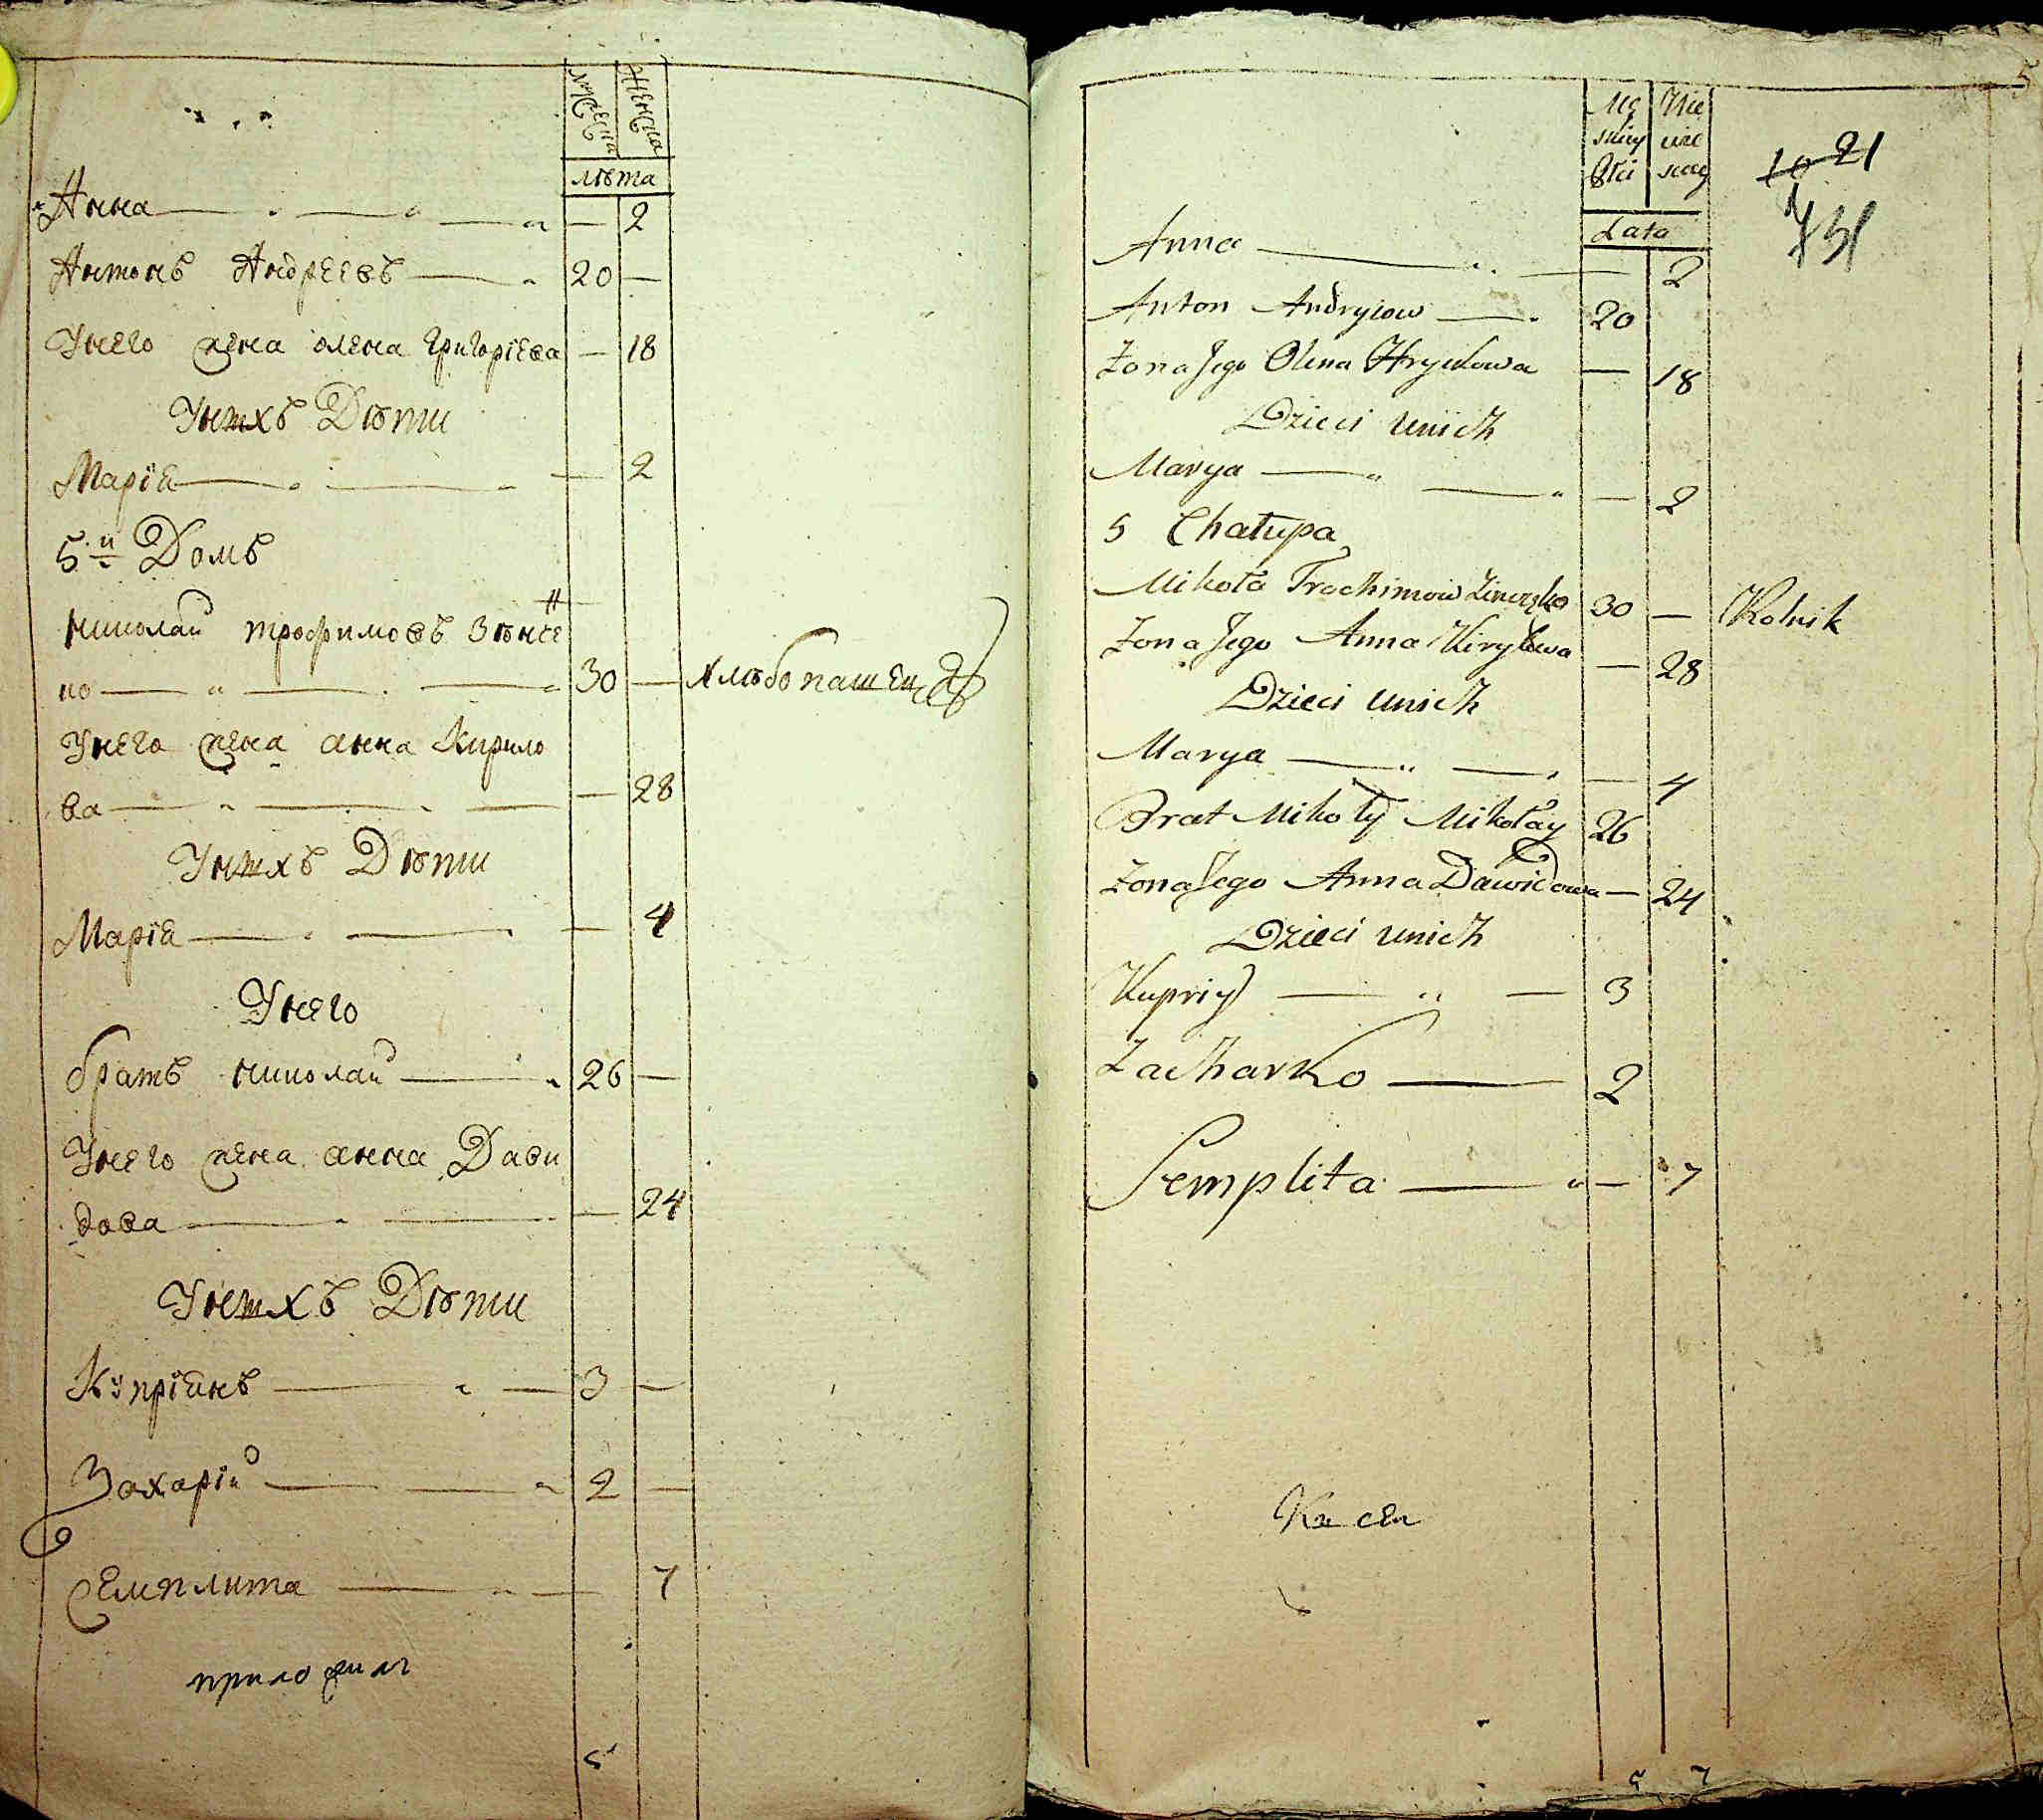 мꙋжеска женска
лѣта
Анна — — — 2
Антонъ Андреевъ — 20 —
Унего жена олена григоріева — 18
Унихъ Дѣти
Марія — — — 2
5й Домъ
николай трофимовъ Зѣнче
но — — — 30 — хлѣбопашецъ
Унего жена анна Кирило
ва — — — — 28
Унихъ Дѣти
Марія — — — 4
Унего
братъ николай — 26 —
Унего жена анна Дави
дова — — — 24
Унихъ Дѣти
Кꙋпріянъ — — 3 —
Захарій — — 2 —
Семплита — — 7
приложилъ
5
5
Mę skiey Płci Że скiey
Lata
10 21
731
Anna — — 2
Anton Andryiow — 20
Żona Jego Olena Hryckowa — 18
Dzieci unich
Marya — — — 2
5 Chałupa
Mikoła Trochimow Zinczęko 30 — Rolnik
Żona Jego Anna Kiryłowa — 28
Dzieci unich
Marya — — — 4
Brat Mikoły Mikołay 26
Żona Jego Anna Dawidowa — 24
Dzieci unich
Kupriy — — 3
Zacharko — 2
Semplita — — 7
Ки сей
5 7